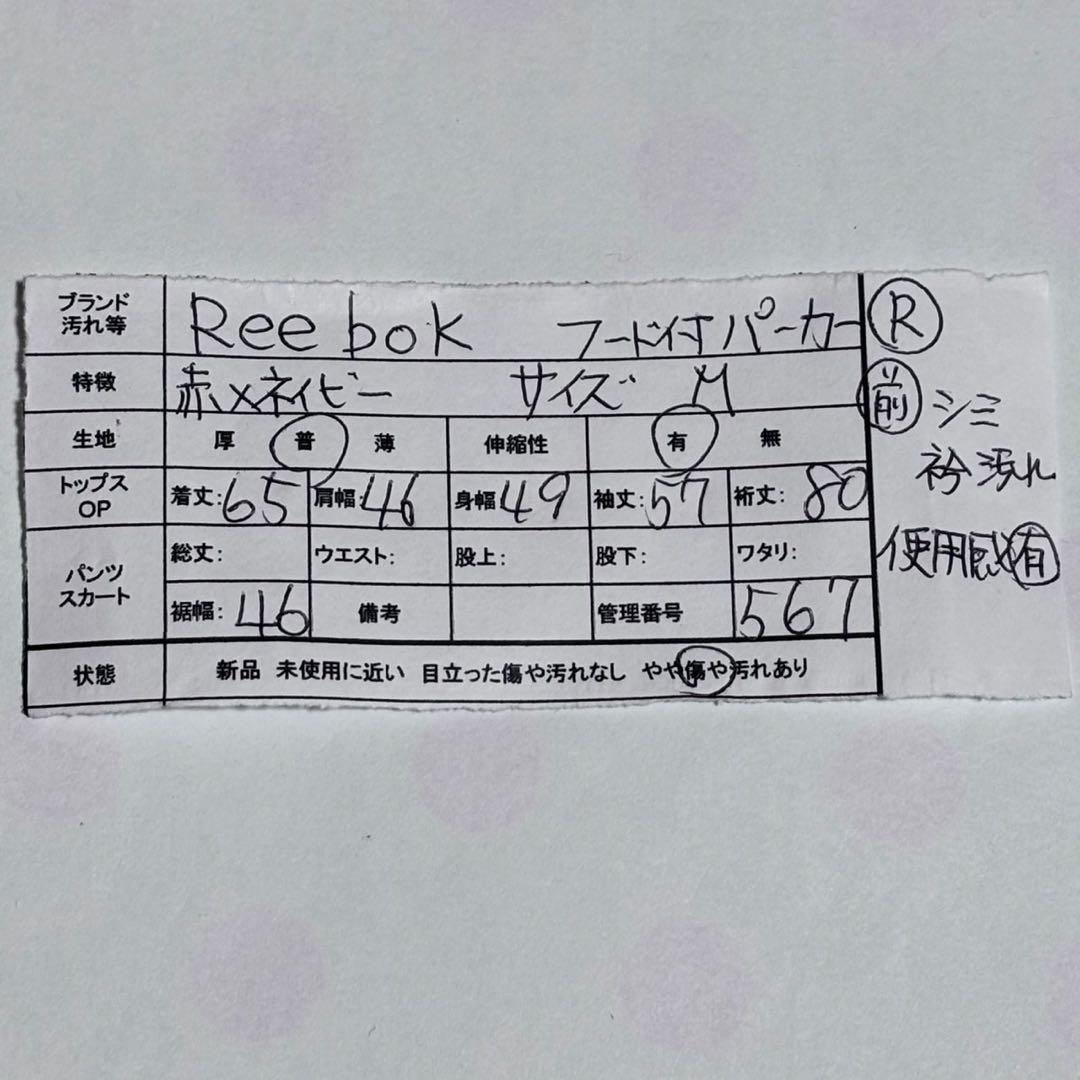 ブランド
汚れ等 Reebok フード付パーカー Ⓡ
特徴 赤×ネイビー サイズ M
前 シミ
生地 厚 普 薄 伸縮性 有 無
衿汚れ
トップス
OP 着丈:65 肩幅:46 身幅49 袖丈:57 裄丈:80
使用感有
パンツ
スカート 総丈: ウエスト: 股上: 股下: ワタリ:
裾幅:46 備考 管理番号 567
状態 新品 未使用に近い 目立った傷や汚れなし やや傷や汚れあり